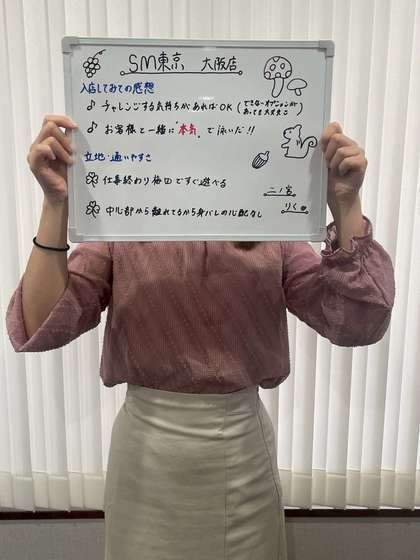 SM東京 大阪店
入店してみての感想
♪ チャレンジする気持ちがあればOK(できないオプションがあっても大丈夫◎)
♪ お客様と一緒に"本気"で泳いだ!!
立地・通いやすさ
仕事終わり梅田ですぐ遊べる
中心部から離れてるから身バレの心配なし
二ノ宮
りく